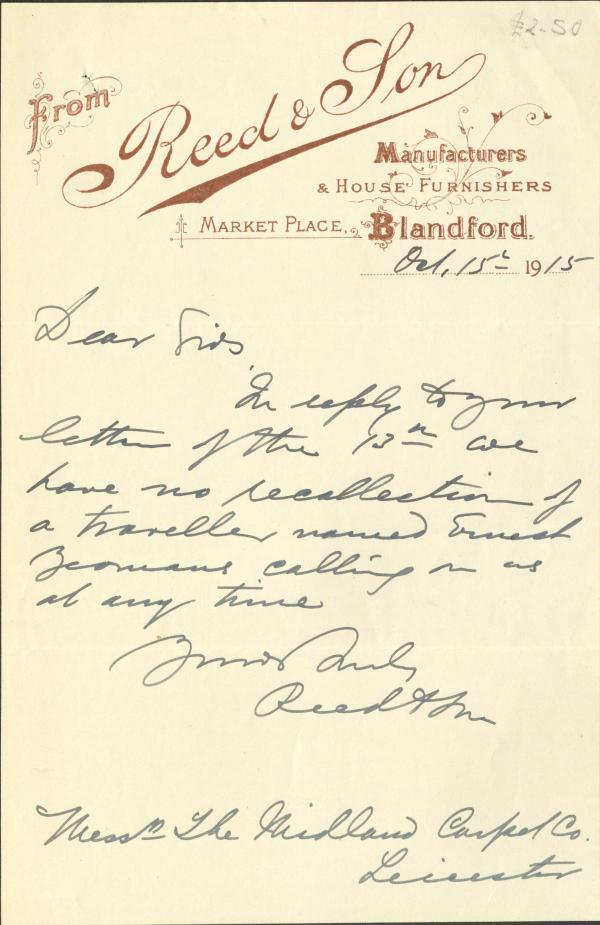 £2-50
From
Reed & Son
Manufacturers
& House Furnishers
Market Place, Blandford.
Oct. 15th 1915
Dear Sirs
In reply to your
letter of the 13th we
have no recollection of
a traveller named Ernest
Yeomans calling on us
at any time
Yours truly
Reed & Son
Messrs The Midland Carpet Co.
Leicester